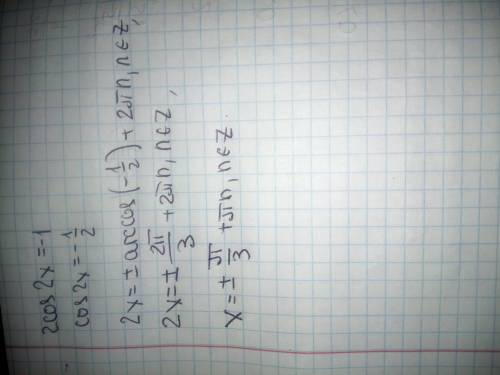 2cos2x=-1
cos2x=-1/2
2x=±arccos(-1/2)+2πn, n∈Z,
2x=± 2π/3 +2πn, n∈Z,
x=± π/3 +πn, n∈Z.